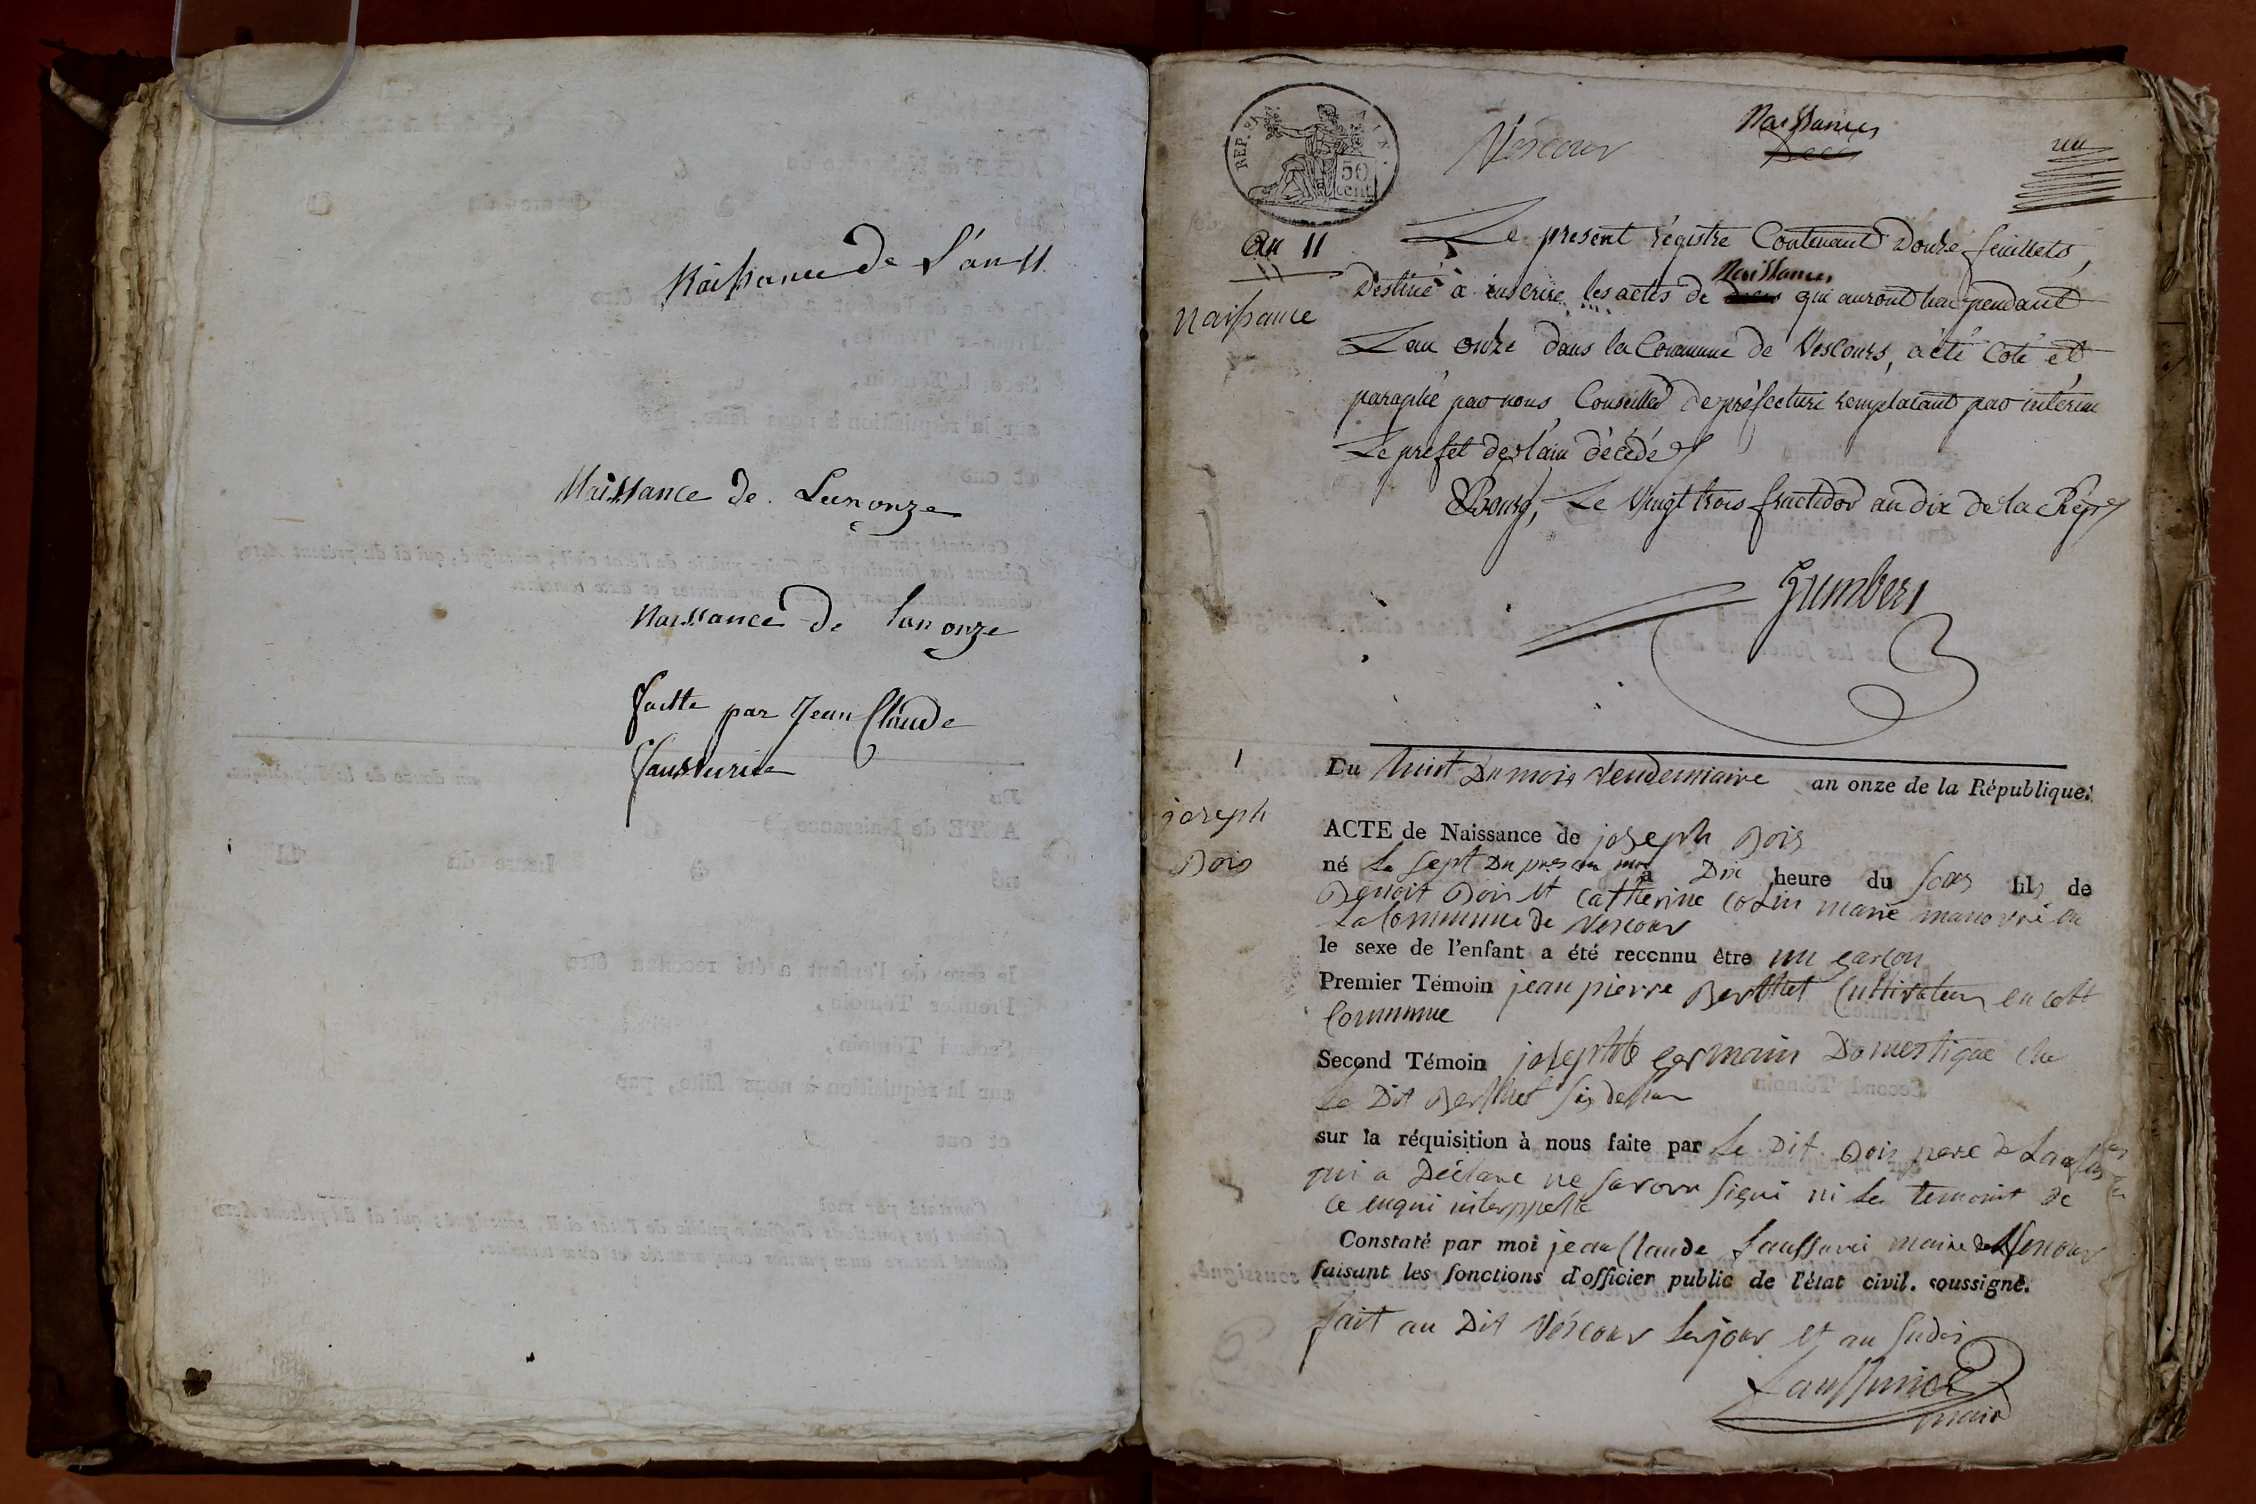 Naissance de L'an 11
Naissance de Lan onze
Naissance de lan onze
faitte par Jean Claude
REP. FRA
AIN.
50
cent
Vescour
Naissances
Décès
un
An 11
Naissance
Le présent régistre Contenant Douze feuillets,
Destiné à inscrire les actes de Naissances qui auront lieu pendant
L'an onze dans la Commune de Vescours, a été Coté et
paraphé par nous Conseiller de préfecture remplaçant par intérim
Le préfet de l'ain décédé
Bourg, Le Vingt trois fructidor an dix de la Rép.
1
joseph
Dois
Du huit Du mois Vendemiaire an onze de la République.
ACTE de Naissance de joseph Dois
né Le sept Du presen moi à Dix heure du soir fils de
Benoit Dois et Catherine marie en
La Commune de Vescour
le sexe de l'enfant a été reconnu être un garson
Premier Témoin jean pierre Berthet Cultivateur en cett
Commune
Second Témoin joseph germain Domestique che
Le Dit Berthet
sur la réquisition à nous faite par Le Dit Dois pere de
qui a Déclaré ne savoir signé ni Les temoint de
ce enqui interppellé
Constaté par moi jean Claude maire de Vescour
faisant les fonctions d'officier public de l'état civil. soussigné.
fait au Dit Vescour Le jour et an sudis
maire